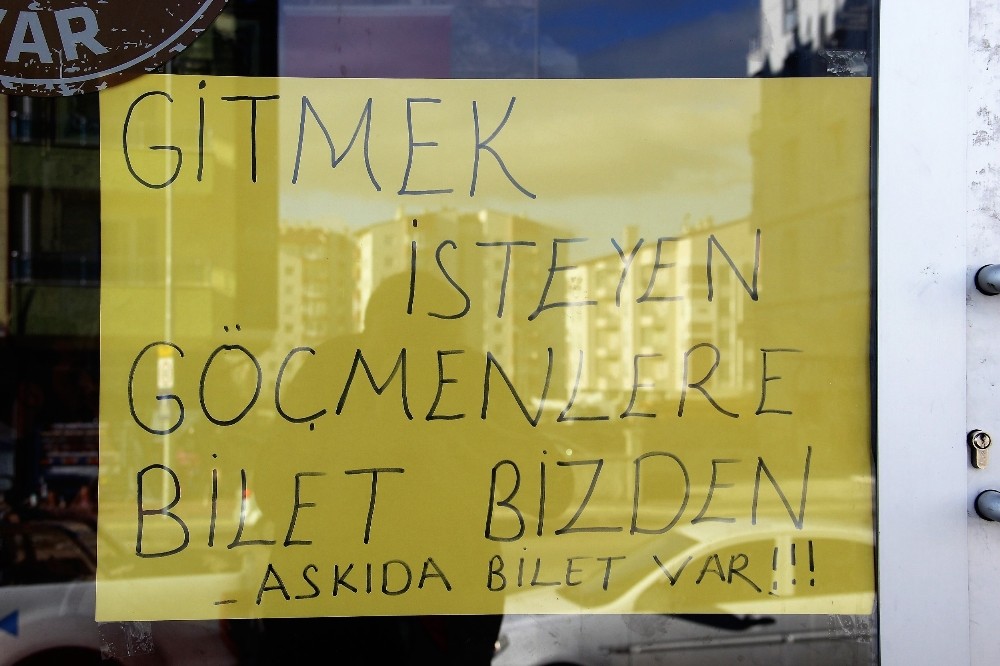 YAR
GİTMEK
İSTEYEN
GÖÇMENLERE
BİLET BİZDEN
_ ASKIDA BİLET VAR!!!